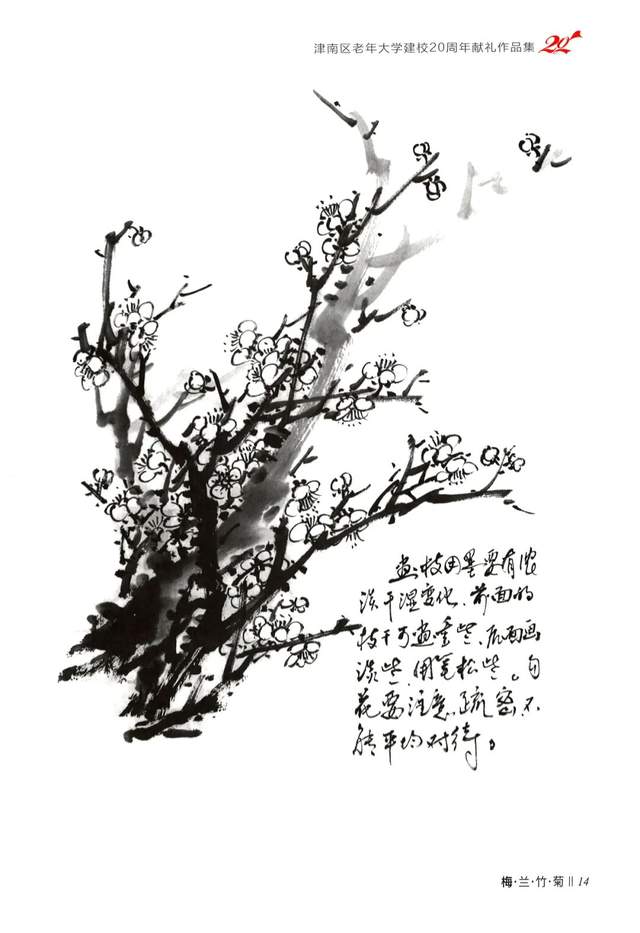 津南区老年大学建校20周年献礼作品集 20
画枝用墨要有浓
淡干湿变化、前面的
枝干可画重些、后面画
淡些、用笔松些。勾
花要注意疏密、不
能平均对待。
梅·兰·竹·菊 || 14